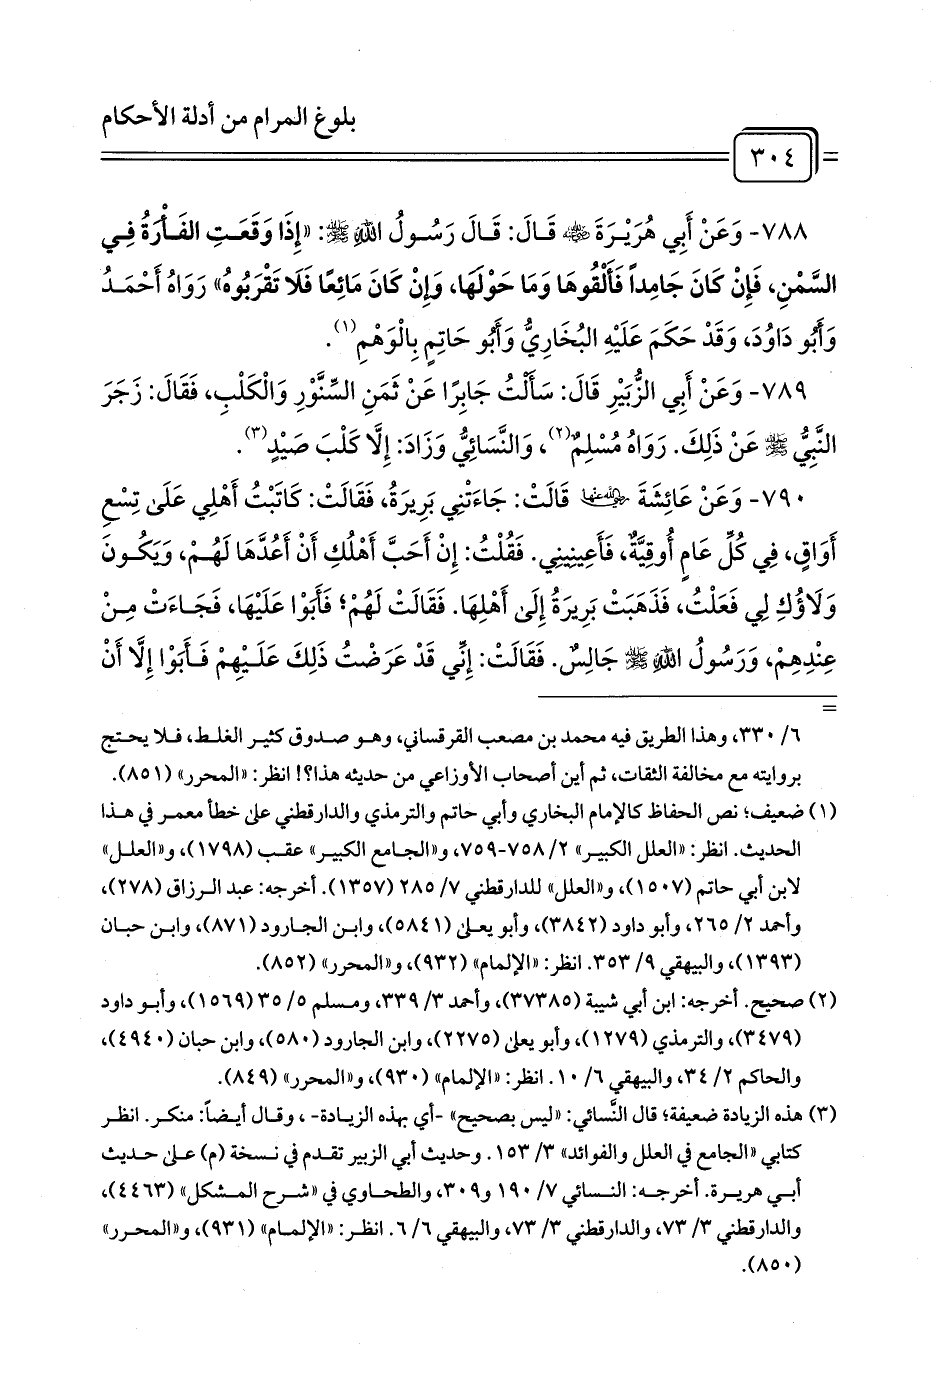 بلوغ المرام من أدلة الأحكام
٣٠٤
٧٨٨- وَعَنْ أَبِي هُرَيْرَةَ ﵁ قَالَ: قَالَ رَسُولُ اللهِ ﷺ: «إِذَا وَقَعَتِ الفَأْرَةُ فِي
السَّمْنِ، فَإِنْ كَانَ جَامِداً فَأَلْقُوهَا وَمَا حَوْلَهَا، وَإِنْ كَانَ مَائِعًا فَلَا تَقْرَبُوهُ» رَوَاهُ أَحْمَدُ
وَأَبُو دَاوُدَ، وَقَدْ حَكَمَ عَلَيْهِ البُخَارِيُّ وَأَبُو حَاتِمٍ بِالْوَهْمِ(١).
٧٨٩- وَعَنْ أَبِي الزُّبَيْرِ قَالَ: سَأَلْتُ جَابِرًا عَنْ ثَمَنِ السِّنَّوْرِ وَالْكَلْبِ، فَقَالَ: زَجَرَ
النَّبِيُّ ﷺ عَنْ ذَلِكَ. رَوَاهُ مُسْلِمٌ(٢)، وَالنَّسَائِيُّ وَزَادَ: إِلَّا كَلْبَ صَيْدٍ(٣).
٧٩٠- وَعَنْ عَائِشَةَ ﵂ قَالَتْ: جَاءَتْنِي بَرِيرَةُ، فَقَالَتْ: كَاتَبْتُ أَهْلِي عَلَى تِسْعِ
أَوَاقٍ، فِي كُلِّ عَامٍ أُوقِيَّةٌ، فَأَعِينِينِي. فَقُلْتُ: إِنْ أَحَبَّ أَهْلُكِ أَنْ أَعُدَّهَا لَهُمْ، وَيَكُونَ
وَلَاؤُكِ لِي فَعَلْتُ، فَذَهَبَتْ بَرِيرَةُ إِلَى أَهْلِهَا. فَقَالَتْ لَهُمْ؛ فَأَبَوْا عَلَيْهَا، فَجَاءَتْ مِنْ
عِنْدِهِمْ، وَرَسُولُ اللهِ ﷺ جَالِسٌ. فَقَالَتْ: إِنِّي قَدْ عَرَضْتُ ذَلِكَ عَلَيْهِمْ فَأَبَوْا إِلَّا أَنْ
=
٦/ ٣٣٠، وهذا الطريق فيه محمد بن مصعب القرقساني، وهو صدوق كثير الغلط، فلا يحتج
بروايته مع مخالفة الثقات، ثم أين أصحاب الأوزاعي من حديثه هذا؟! انظر: «المحرر» (٨٥١).
(١) ضعيف؛ نص الحفاظ كالإمام البخاري وأبي حاتم والترمذي والدارقطني على خطأ معمر في هذا
الحديث. انظر: «العلل الكبير» ٢/ ٧٥٨-٧٥٩، و«الجامع الكبير» عقب (١٧٩٨)، و«العلل»
لابن أبي حاتم (١٥٠٧)، و«العلل» للدارقطني ٧/ ٢٨٥ (١٣٥٧). أخرجه: عبد الرزاق (٢٧٨)،
وأحمد ٢/ ٢٦٥، وأبو داود (٣٨٤٢)، وأبو يعلى (٥٨٤١)، وابن الجارود (٨٧١)، وابن حبان
(١٣٩٣)، والبيهقي ٩/ ٣٥٣. انظر: «الإلمام» (٩٣٢)، و«المحرر» (٨٥٢).
(٢) صحيح. أخرجه: ابن أبي شيبة (٣٧٣٨٥)، وأحمد ٣/ ٣٣٩، ومسلم ٥/ ٣٥ (١٥٦٩)، وأبو داود
(٣٤٧٩)، والترمذي (١٢٧٩)، وأبو يعلى (٢٢٧٥)، وابن الجارود (٥٨٠)، وابن حبان (٤٩٤٠)،
والحاكم ٢/ ٣٤، والبيهقي ٦/ ١٠. انظر: «الإلمام» (٩٣٠)، و«المحرر» (٨٤٩).
(٣) هذه الزيادة ضعيفة؛ قال النَّسائي: «ليس بصحيح» -أي بهذه الزيادة- ، وقال أيضاً: منكر. انظر
كتابي «الجامع في العلل والفوائد» ٣/ ١٥٣. وحديث أبي الزبير تقدم في نسخة (م) على حديث
أبي هريرة. أخرجه: النسائي ٧/ ١٩٠ و٣٠٩، والطحاوي في «شرح المشكل» (٤٤٦٣)،
والدارقطني ٣/ ٧٣، والدارقطني ٣/ ٧٣، والبيهقي ٦/ ٦. انظر: «الإلمام» (٩٣١)، و«المحرر»
(٨٥٠).